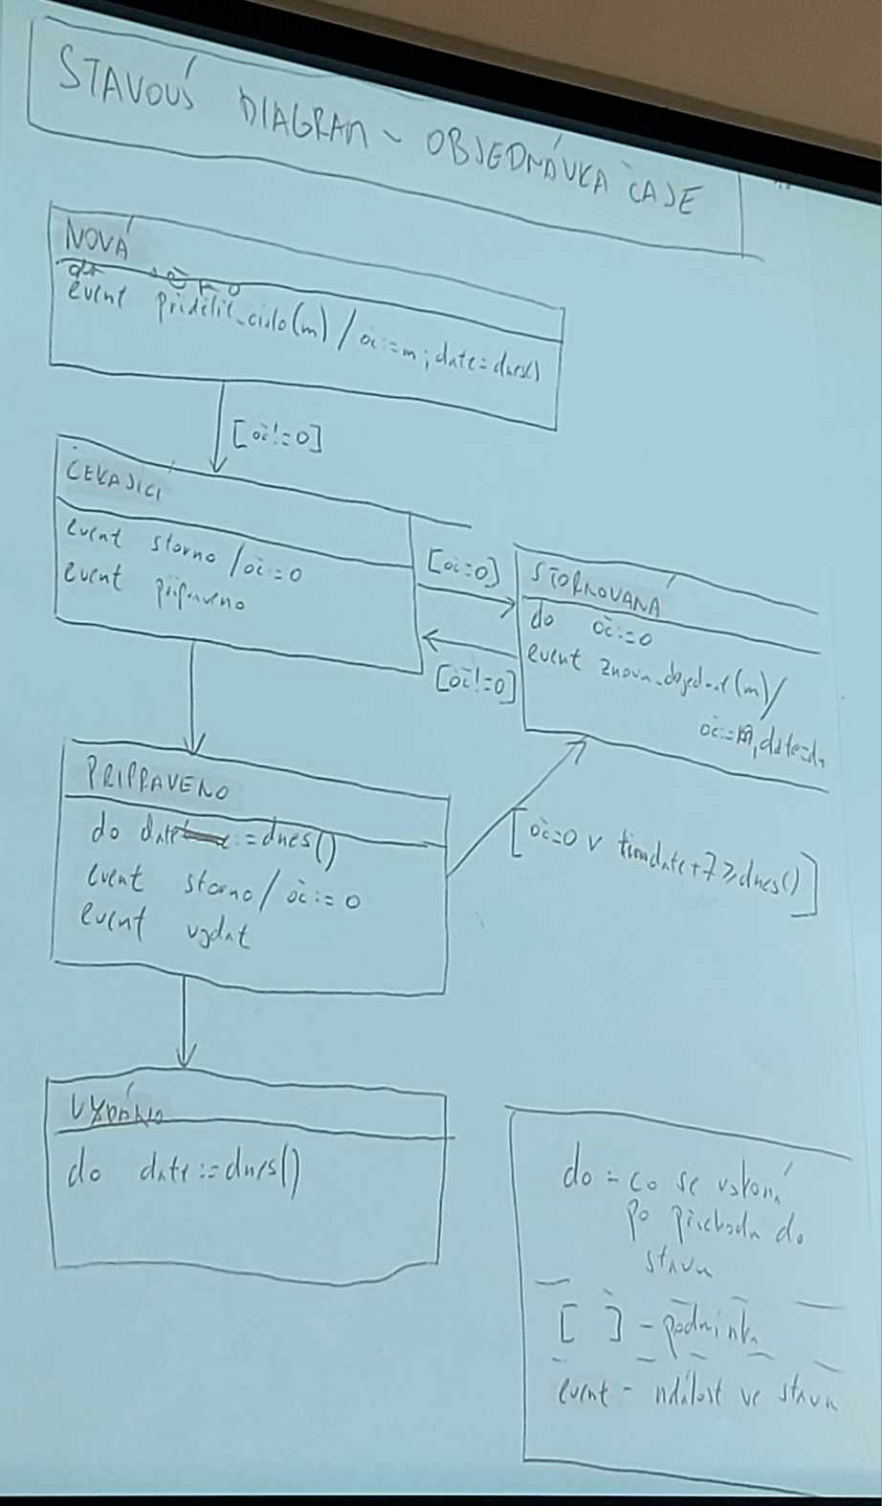 STAVOVÝ DIAGRAM ~ OBJEDNÁVKA ČAJE
NOVÁ
event přidělit_číslo(m) / oč:=m; date=dnes()
[oč!=0]
ČEKAJÍCÍ
event storno / oč:=0
event připraveno
[oč=0]
[oč!=0]
STORNOVANÁ
do oč:=0
event (m)/
oč:=m, date=dn
PŘIPRAVENO
do date:=dnes()
event storno / oč:=0
event vydat
[oč=0 v date+7≥dnes()]
VYDÁNO
do date:=dnes()
do - co se vykoná
po příchodu do
stavu
[ ] - podmínka
event - událost ve stavu